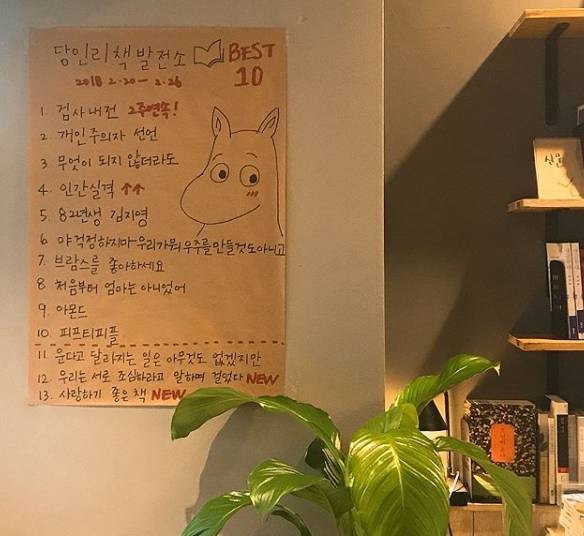 당인리책발전소 BEST
10
2018 2.20 - 2.26
1. 검사내전 2주연속!
2. 개인주의자 선언
3. 무엇이 되지 않더라도
4. 인간실격 ↑↑
5. 82년생 김지영
6. 야 걱정하지마 우리가 뭐 우주를 만들것도아니고
7. 브람스를 좋아하세요
8. 처음부터 엄마는 아니었어
9. 아몬드
10. 피프티피플
11. 운다고 달라지는 일은 아무것도 없겠지만
12. 우리는 서로 조심하라고 말하며 걸었다 NEW
13. 사랑하기 좋은 책 NEW